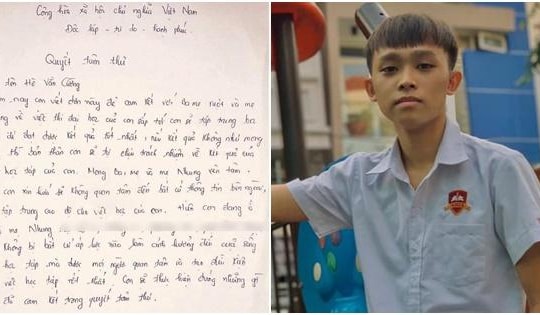 Cộng hòa xã hội chủ nghĩa Việt Nam
Độc lập - Tự do - Hạnh phúc
Quyết tâm thư
tên Hồ Văn Cường
nay con viết đơn này để cam kết với ba mẹ ruột và mẹ
về việc thi đại học của con sắp tới con sẽ tập trung
để đạt được kết quả tốt nhất, nếu kết quả không như mong
thì bản thân con sẽ tự chịu trách nhiệm về kết quả của
học tập của con. Mong ba, mẹ và mẹ Nhung yên tâm.
con xin hứa sẽ không quan tâm đến bất cứ thông tin bên ngoài,
tập trung cao độ cho việc học của con. Hiện con đang ở
mẹ Nhung
không bị bất cứ áp lực nào làm ảnh hưởng đến cuộc sống
học tập mà được mọi người quan tâm và tạo điều kiện
việc học tập tốt nhất. Con sẽ thực hiện đúng những gì
đã cam kết trong quyết tâm thư.